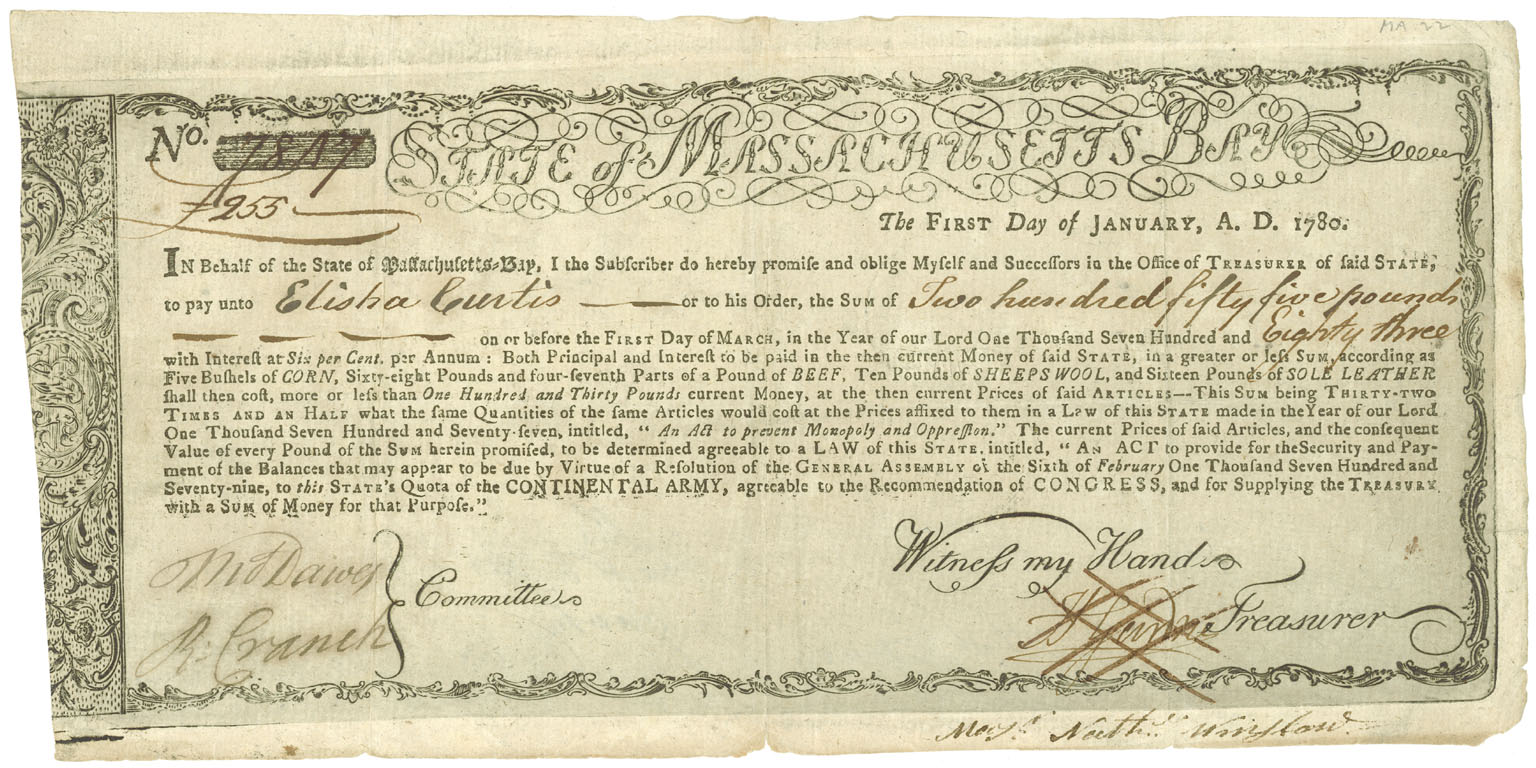 MA-22
No. 7847
STATE of MASSACHUSETTS BAY
£255
The FIRST Day of JANUARY, A. D. 1780.
IN Behalf of the State of Maſſachuſetts-Bay, I the Subſcriber do hereby promiſe and oblige Myſelf and Succeſſors in the Office of TREASURER of ſaid STATE,
to pay unto Elisha Curtis or to his Order, the SUM of Two hundred fifty five pounds
on or before the FIRST Day of MARCH, in the Year of our Lord One Thouſand Seven Hundred and Eighty three
with Intereſt at Six per Cent. per Annum: Both Principal and Intereſt to be paid in the then current Money of ſaid STATE, in a greater or leſs SUM, according as
Five Buſhels of CORN, Sixty-eight Pounds and four-ſeventh Parts of a Pound of BEEF, Ten Pounds of SHEEPS WOOL, and Sixteen Pounds of SOLE LEATHER
ſhall then coſt, more or leſs than One Hundred and Thirty Pounds current Money, at the then current Prices of ſaid ARTICLES—This SUM being THIRTY-TWO
TIMES AND AN HALF what the ſame Quantities of the ſame Articles would coſt at the Prices affixed to them in a Law of this STATE made in the Year of our Lord
One Thouſand Seven Hundred and Seventy-ſeven, intitled, "An Act to prevent Monopoly and Oppreſſion." The current Prices of ſaid Articles, and the conſequent
Value of every Pound of the SUM herein promiſed, to be determined agreeable to a LAW of this STATE, intitled, "AN ACT to provide for the Security and Pay-
ment of the Balances that may appear to be due by Virtue of a Reſolution of the GENERAL ASSEMBLY of the Sixth of February One Thouſand Seven Hundred and
Seventy-nine, to this STATE's Quota of the CONTINENTAL ARMY, agreeable to the Recommendation of CONGRESS, and for Supplying the TREASURY
with a SUM of Money for that Purpoſe."
Witneſs my Hand
Thos Dawes
Committee
R: Cranch
Treasurer
Nathl. Winslow